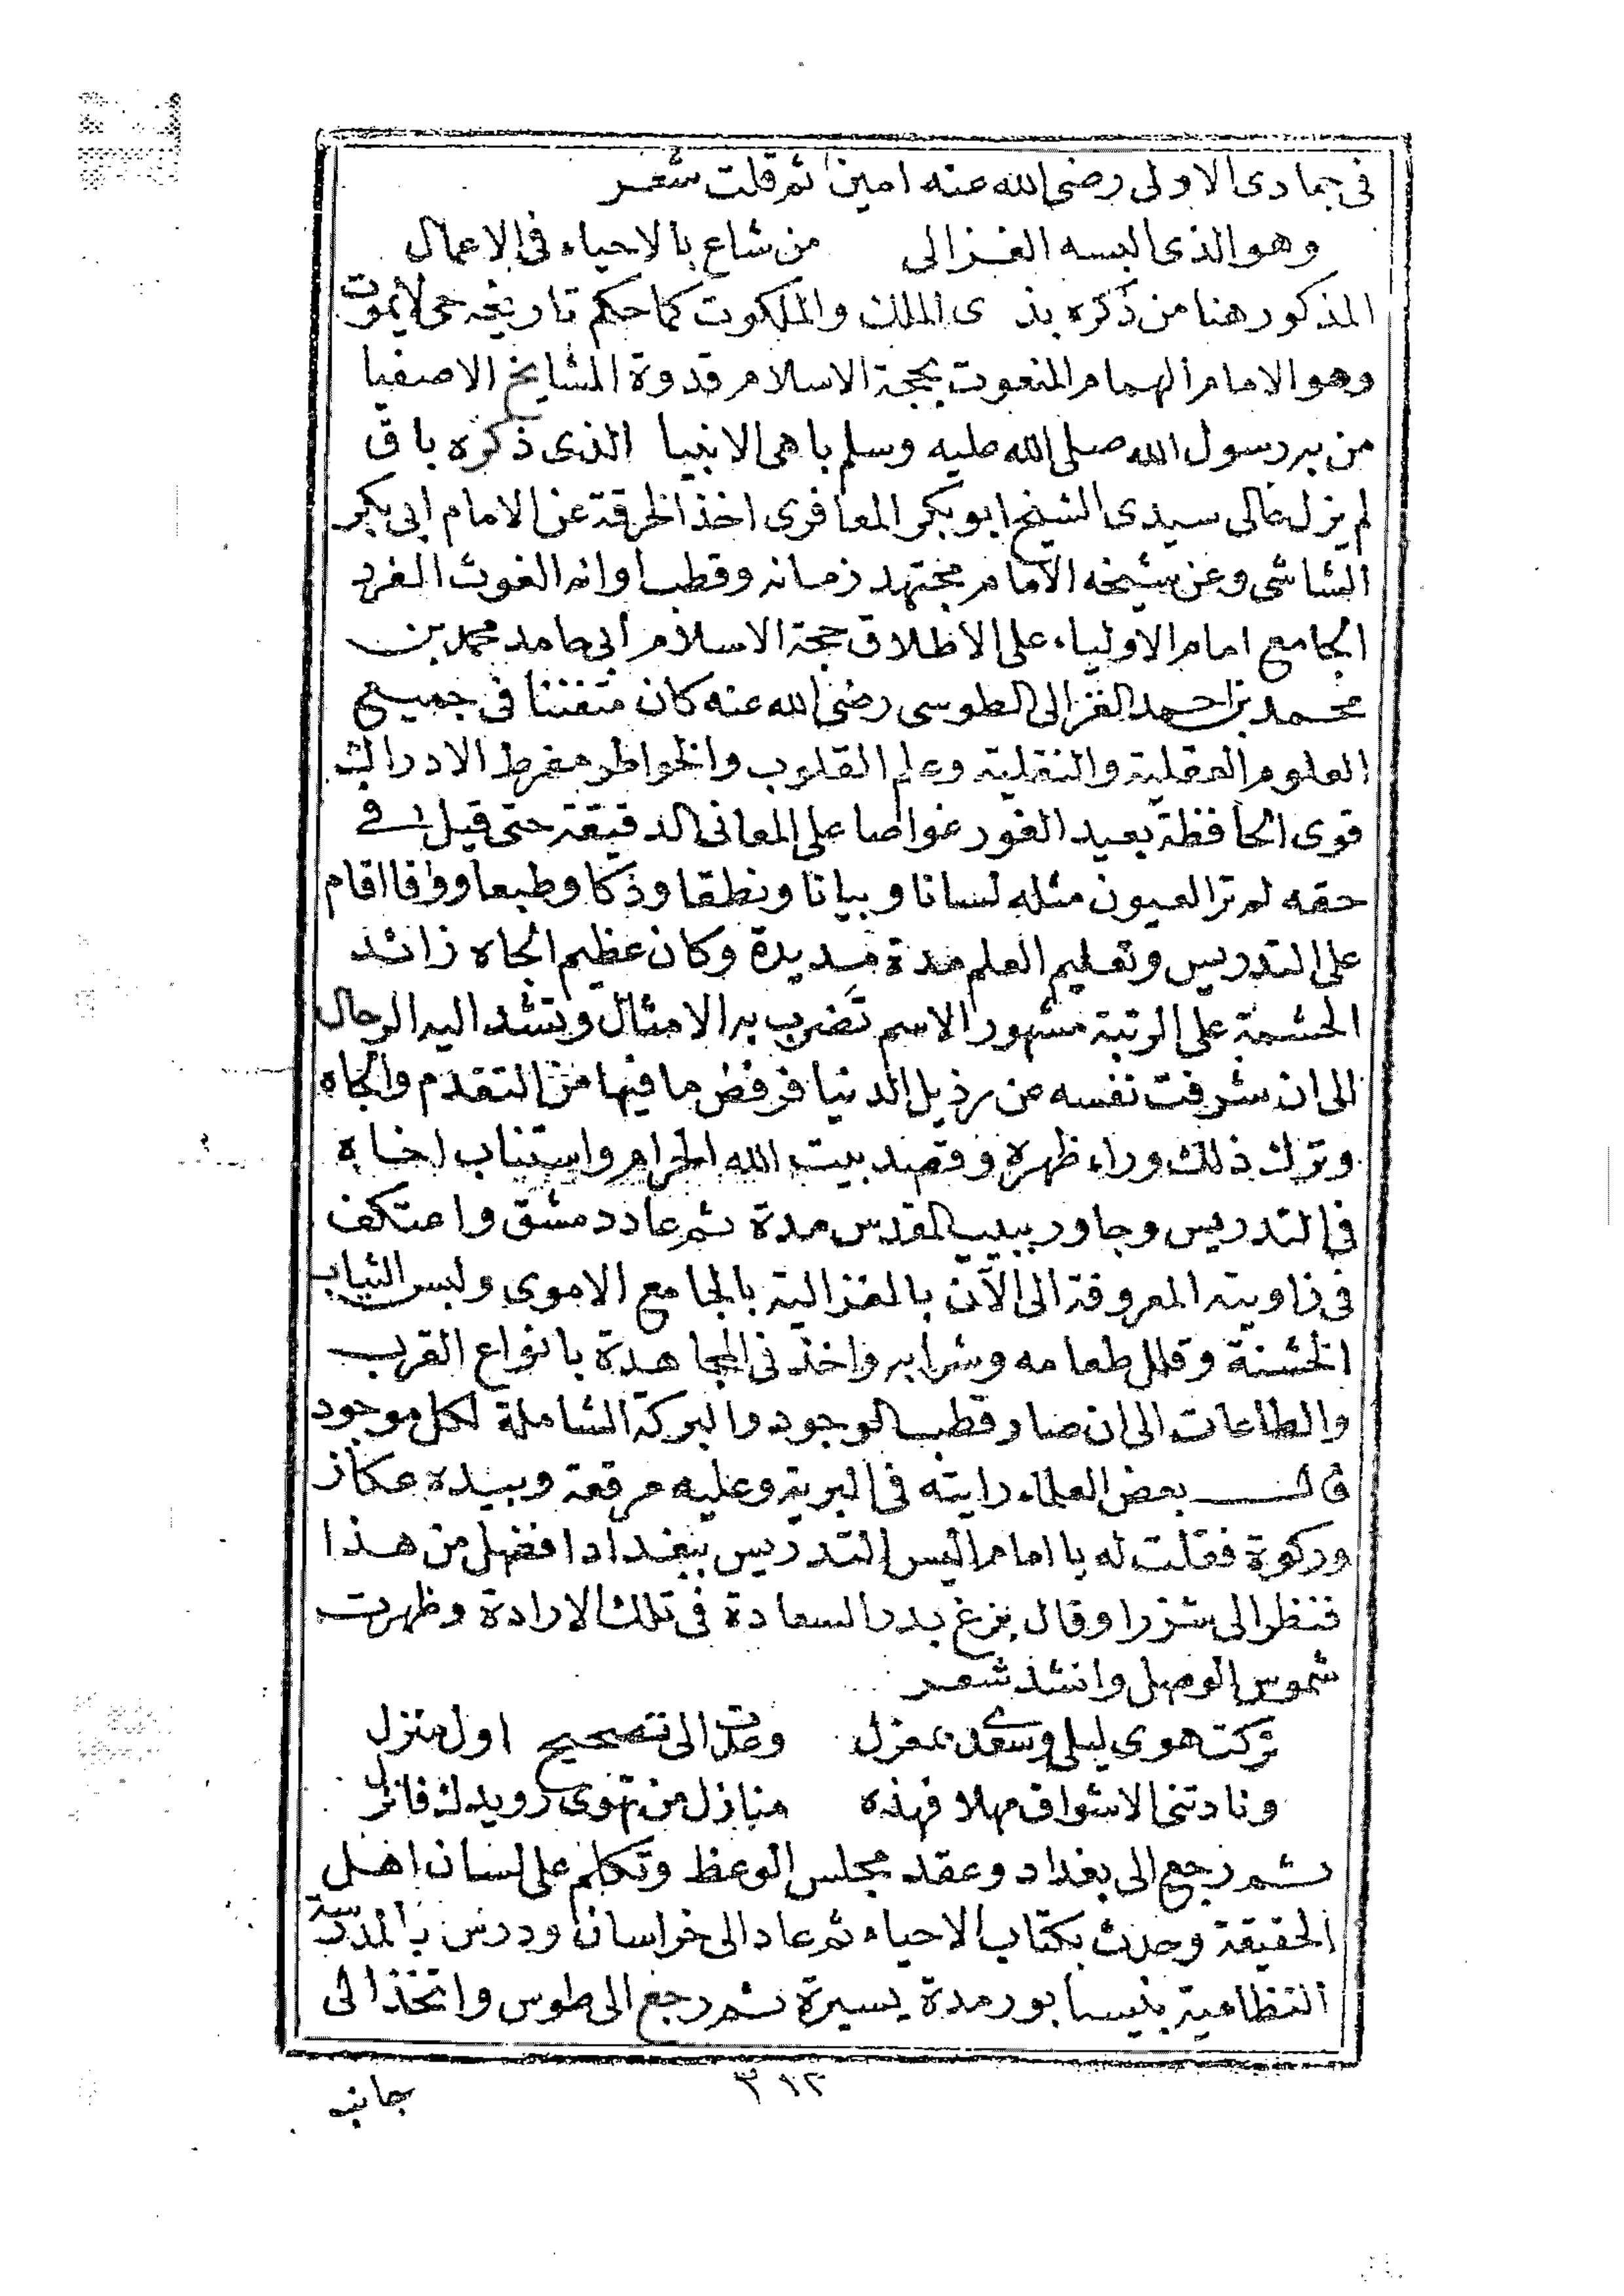 فى جمادى الاولى رضى الله عنه امين ثم قلت شعر
وهو الذى البسه الغزالى من شاع بالاحياء فى الاعمال
المذكور هنا من ذكره بذى الملك والملكوت كما حكم تاريخه حى لايموت
وهو الامام الهمام المنعوت بحجة الاسلام قدوة المشايخ الاصفيا
من به رسول الله صلى الله عليه وسلم باهى الانبيا الذى ذكره باق
لم يزل عالى سيدى الشيخ ابو بكر المعافرى اخذ الخرقة عن الامام ابى بكر
الشاشى وعن شيخه الامام مجتهد زمانه وقطب اوانه الغوث الفرد
الجامع امام الاولياء على الاطلاق حجة الاسلام ابى حامد محمد بن
محمد بن احمد الغزالى الطوسى رضى الله عنه كان متفننا فى جميع
العلوم العقلية والنقلية وعلم القلوب والخواطر مفرط الادراك
قوى الحافظة بعيد الغور غواصا على المعانى الدقيقة حتى قيل فى
حقه لم تر العيون مثله لسانا وبيانا ونطقا وذكا وطبعا ووفا اقام
على التدريس وتعليم العلم مدة مديدة وكان عظيم الجاه زائد
الحشمة على الرتبة مشهور الاسم تضرب به الامثال وتشد اليه الرحال
الى ان شرفت نفسه عن رذيل الدنيا فرفض ما فيها من التقدم والجاه
وترك ذلك وراء ظهره وقصد بيت الله الحرام واستناب اخاه
فى التدريس وجاور ببيت القدس مدة ثم عاد دمشق واعتكف
فى زاويته المعروفة الى الآن بالغزالية بالجامع الاموى ولبس الثياب
الخشنة وقلل طعامه وشرابه واخذ فى المجاهدة بانواع القرب
والطاعات الى ان صار قطب الوجود والبركة الشاملة لكل موجود
قال بعض العلماء رايته فى البرية وعليه مرقعة وبيده عكاز
وركوة فقلت له يا امام اليس التدريس ببغداد افضل من هذا
فنظر الى شزرا وقال بزغ بدر السعادة فى تلك الارادة وظهرت
شموس الوصل وانشد شعر
تركت هوى ليلى وسعدى بمعزل وعدت الى تصحيح اول منزل
ونادتنى الاشواق مهلا فهذه منازل من تهوى رويدك فانزل
ثم رجع الى بغداد وعقد مجلس الوعظ وتكلم على لسان اهل
الحقيقة وحدث بكتاب الاحياء ثم عاد الى خراسان ودرس بالمدرسة
النظامية بنيسابور مدة يسيرة ثم رجع الى طوس واتخذ الى
٣١٢
جانب